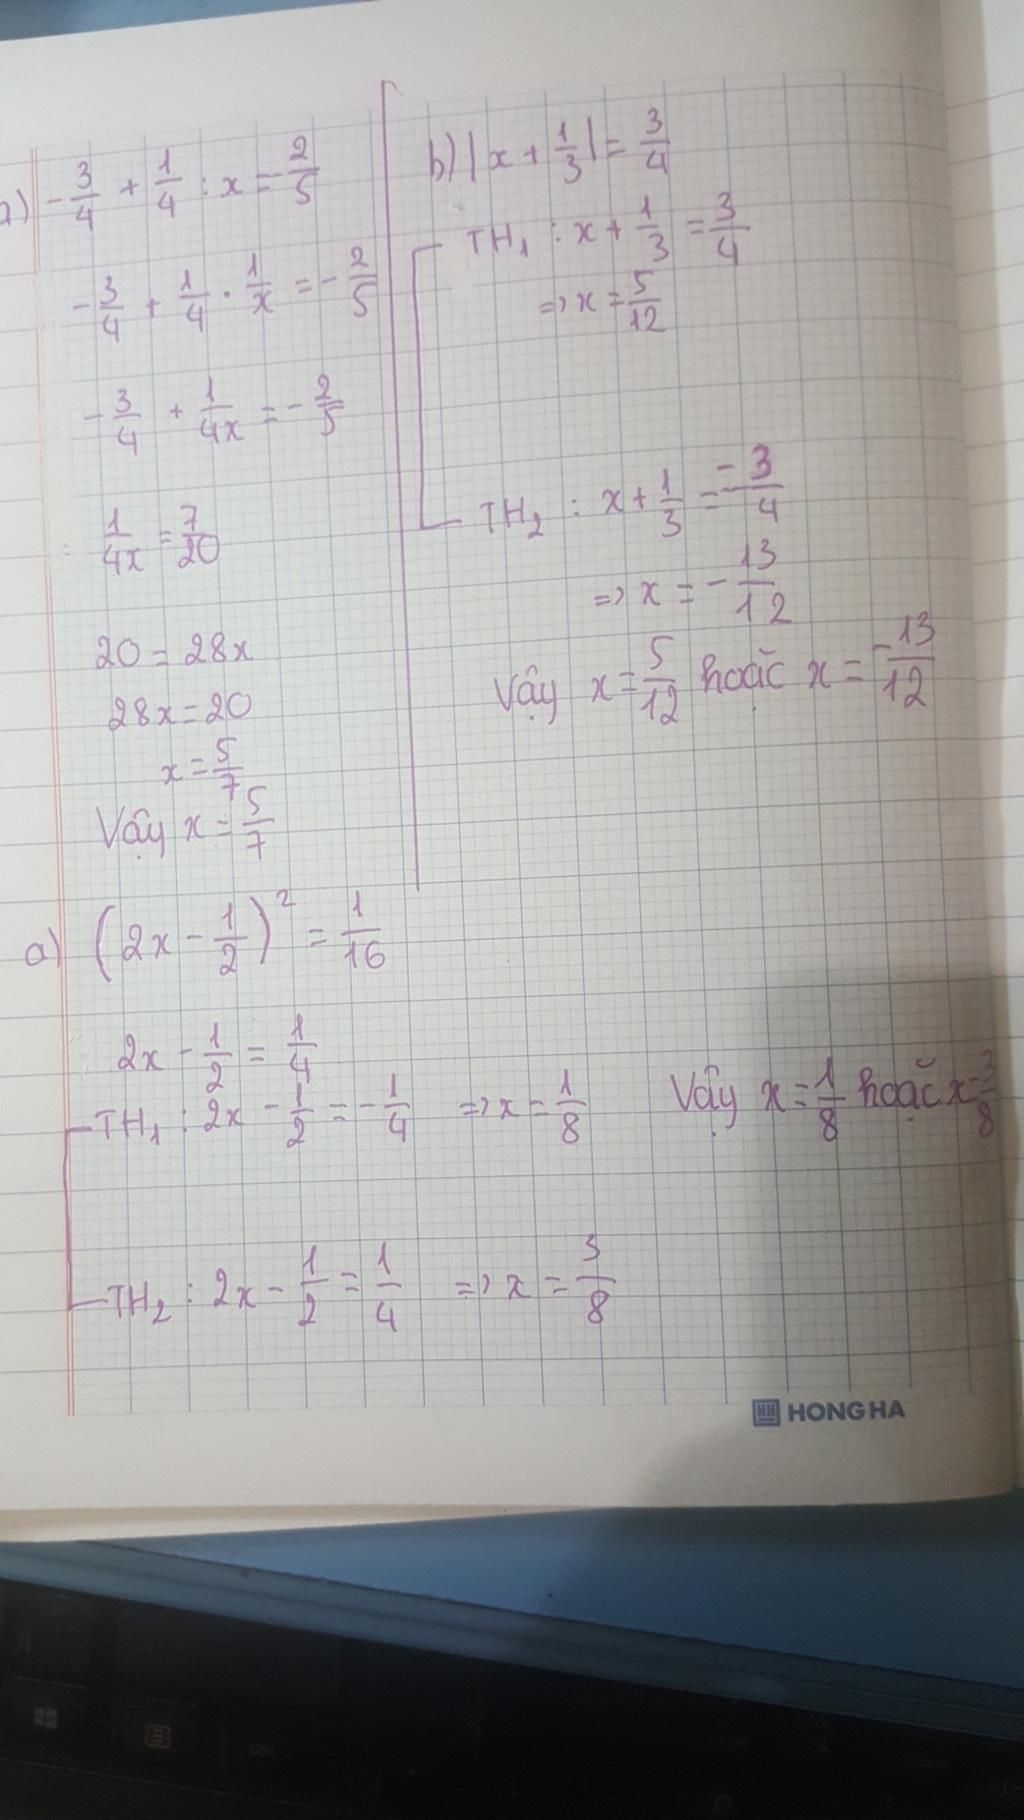 a) -3/4 + 1/4 : x = -2/5
-3/4 + 1/4 . 1/x = -2/5
-3/4 + 1/4x = -2/5
1/4x = 7/20
20 = 28x
28x = 20
x = 5/7
Vậy x = 5/7
b) |x + 1/3| = 3/4
TH1 : x + 1/3 = 3/4
=> x = 5/12
TH2 : x + 1/3 = -3/4
=> x = -13/12
Vậy x = 5/12 hoặc x = -13/12
a) (2x - 1/2)² = 1/16
2x - 1/2 = 1/4
TH1 : 2x - 1/2 = -1/4 => x = 1/8
Vậy x = 1/8 hoặc x = 3/8
TH2 : 2x - 1/2 = 1/4 => x = 3/8
HONG HA